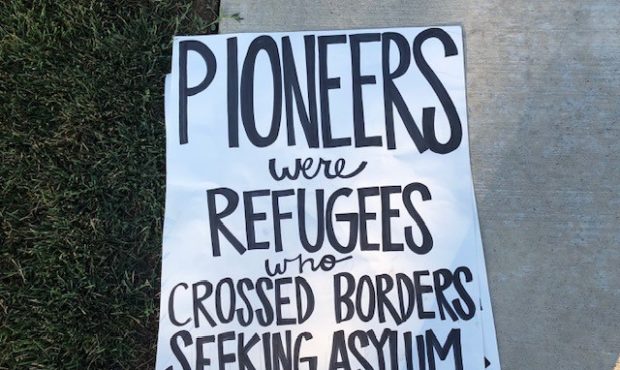 PIONEERS
were
REFUGEES
who
CROSSED BORDERS
SEEKING ASYLUM